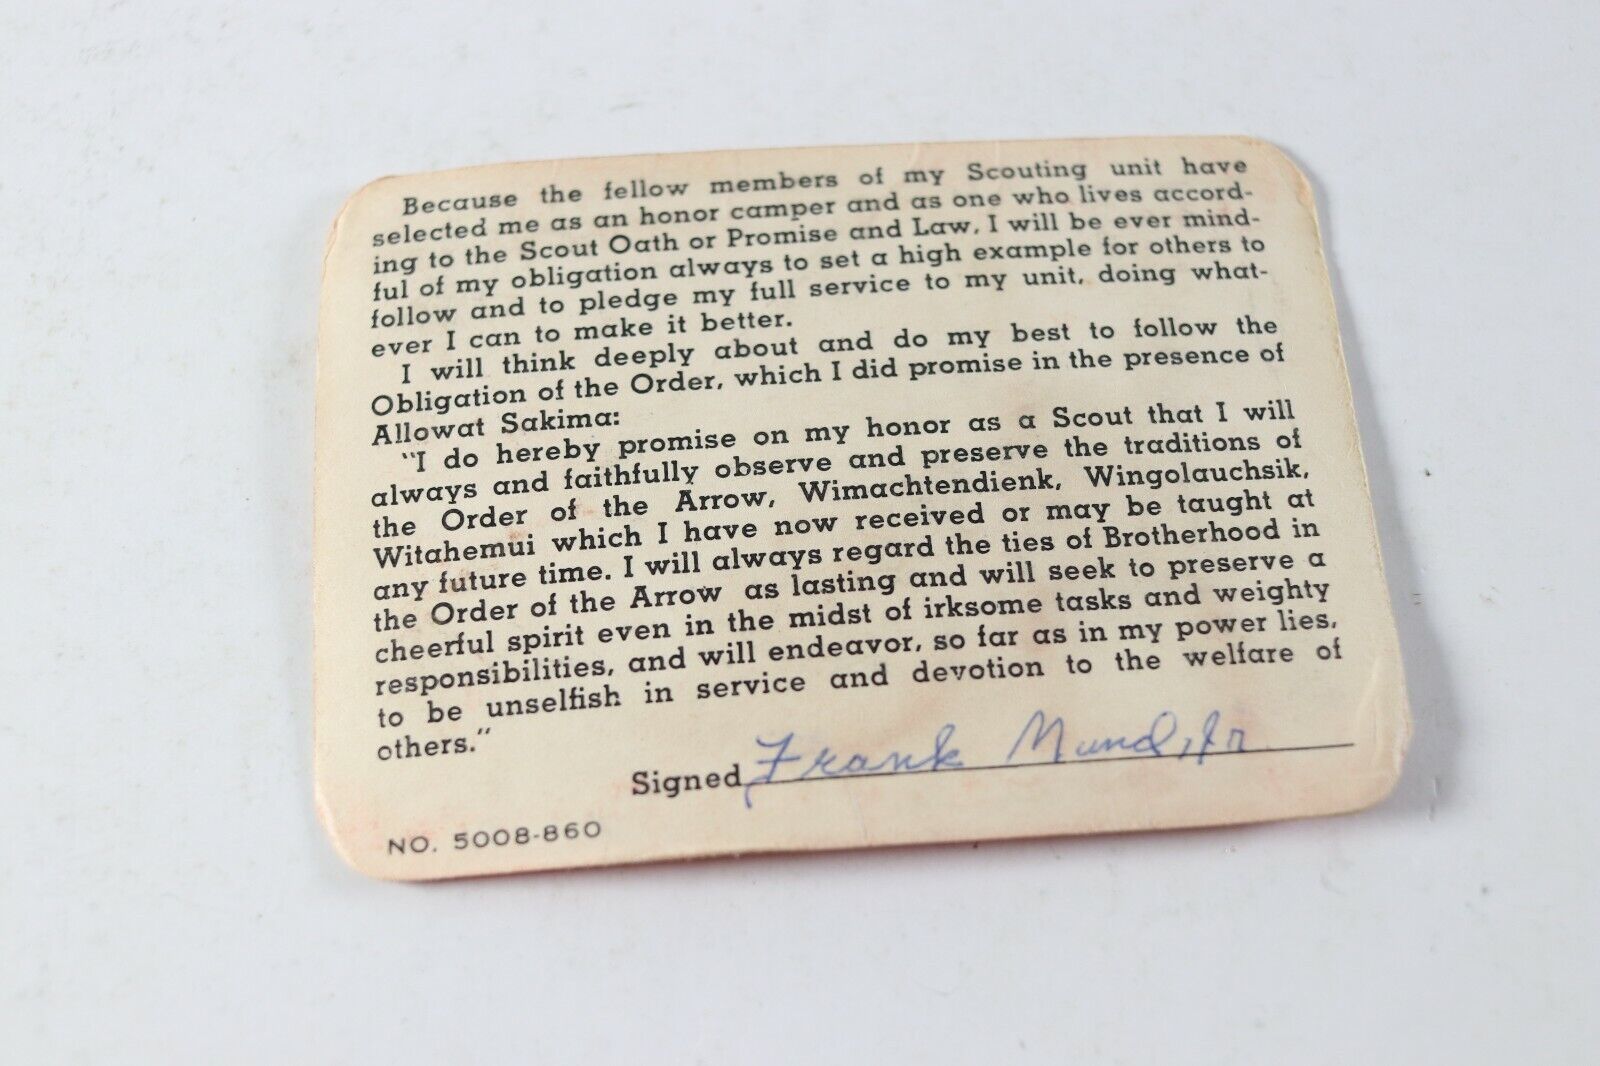 Because the fellow members of my Scouting unit have
selected me as an honor camper and as one who lives accord-
ing to the Scout Oath or Promise and Law, I will be ever mind-
ful of my obligation always to set a high example for others to
follow and to pledge my full service to my unit, doing what-
ever I can to make it better.
I will think deeply about and do my best to follow the
Obligation of the Order, which I did promise in the presence of
Allowat Sakima:
"I do hereby promise on my honor as a Scout that I will
always and faithfully observe and preserve the traditions of
the Order of the Arrow, Wimachtendienk, Wingolauchsik,
Witahemui which I have now received or may be taught at
any future time. I will always regard the ties of Brotherhood in
the Order of the Arrow as lasting and will seek to preserve a
cheerful spirit even in the midst of irksome tasks and weighty
responsibilities, and will endeavor, so far as in my power lies,
to be unselfish in service and devotion to the welfare of
others."
Signed Frank Mund, Jr
NO. 5008-860